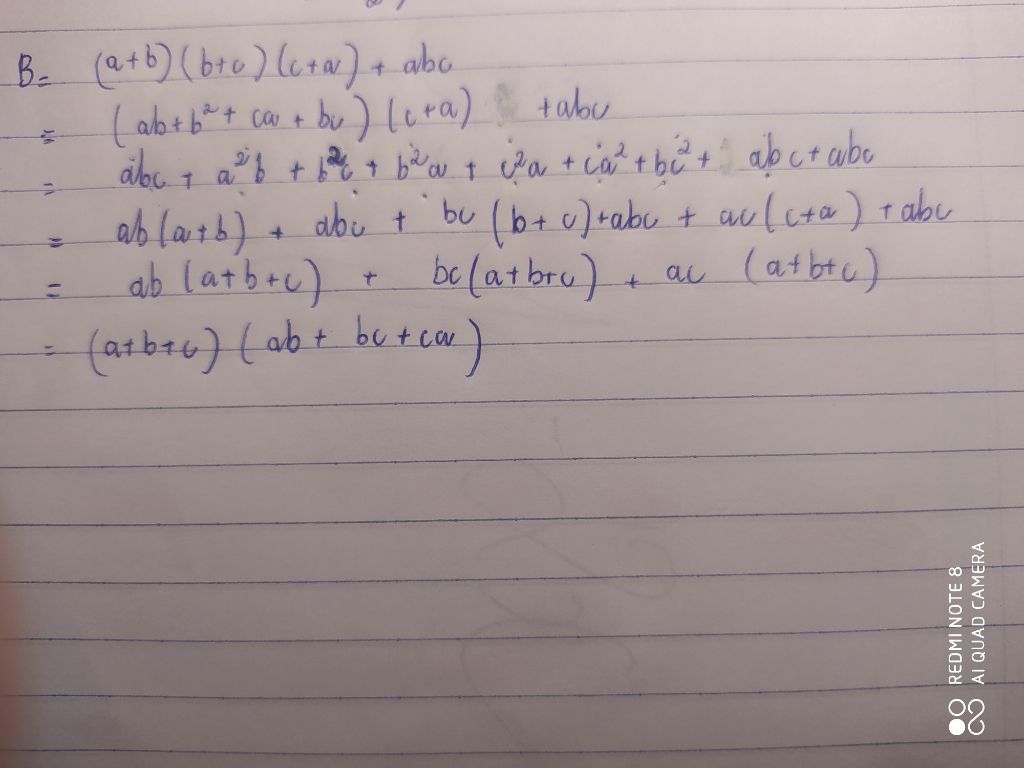 B= (a+b)(b+c)(c+a) + abc
= (ab+b²+ ca + bc)(c+a) +abc
= abc + a²b + b²c + b²a + c²a + ca² + bc² + abc + abc
= ab(a+b) + abc + bc(b+c)+abc + ac(c+a) + abc
= ab(a+b+c) + bc(a+b+c) + ac (a+b+c)
= (a+b+c)(ab + bc + ca)
REDMI NOTE 8
AI QUAD CAMERA